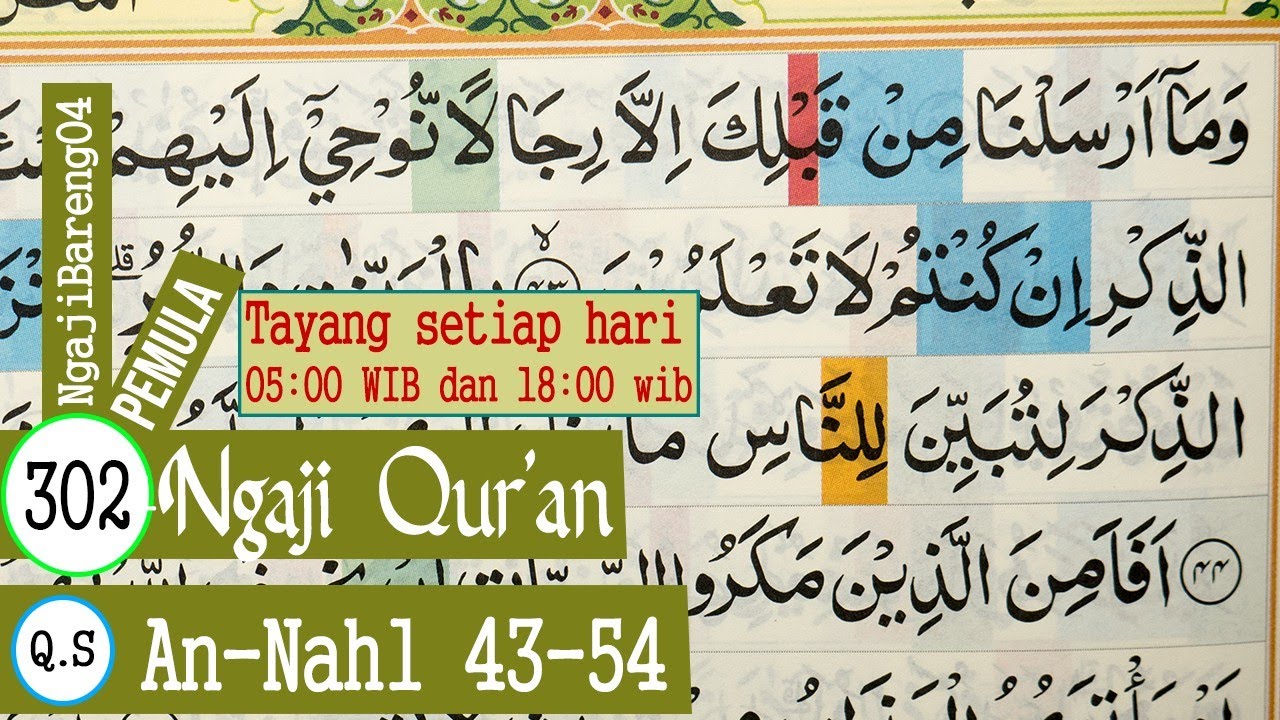 وَمَآ اَرْسَلْنَا مِنْ قَبْلِكَ اِلَّا رِجَالًا نُّوْحِيْٓ اِلَيْهِمْ
الذِّكْرِ اِنْ كُنْتُمْ لَا تَعْلَمُوْنَ ۙ ﴿٤٣﴾
الذِّكْرَ لِتُبَيِّنَ لِلنَّاسِ مَا
﴿٤٤﴾ اَفَاَمِنَ الَّذِيْنَ مَكَرُوا
NgajiBareng04
PEMULA
Tayang setiap hari
05:00 WIB dan 18:00 wib
302 Ngaji Qur'an
Q.S An-Nahl 43-54